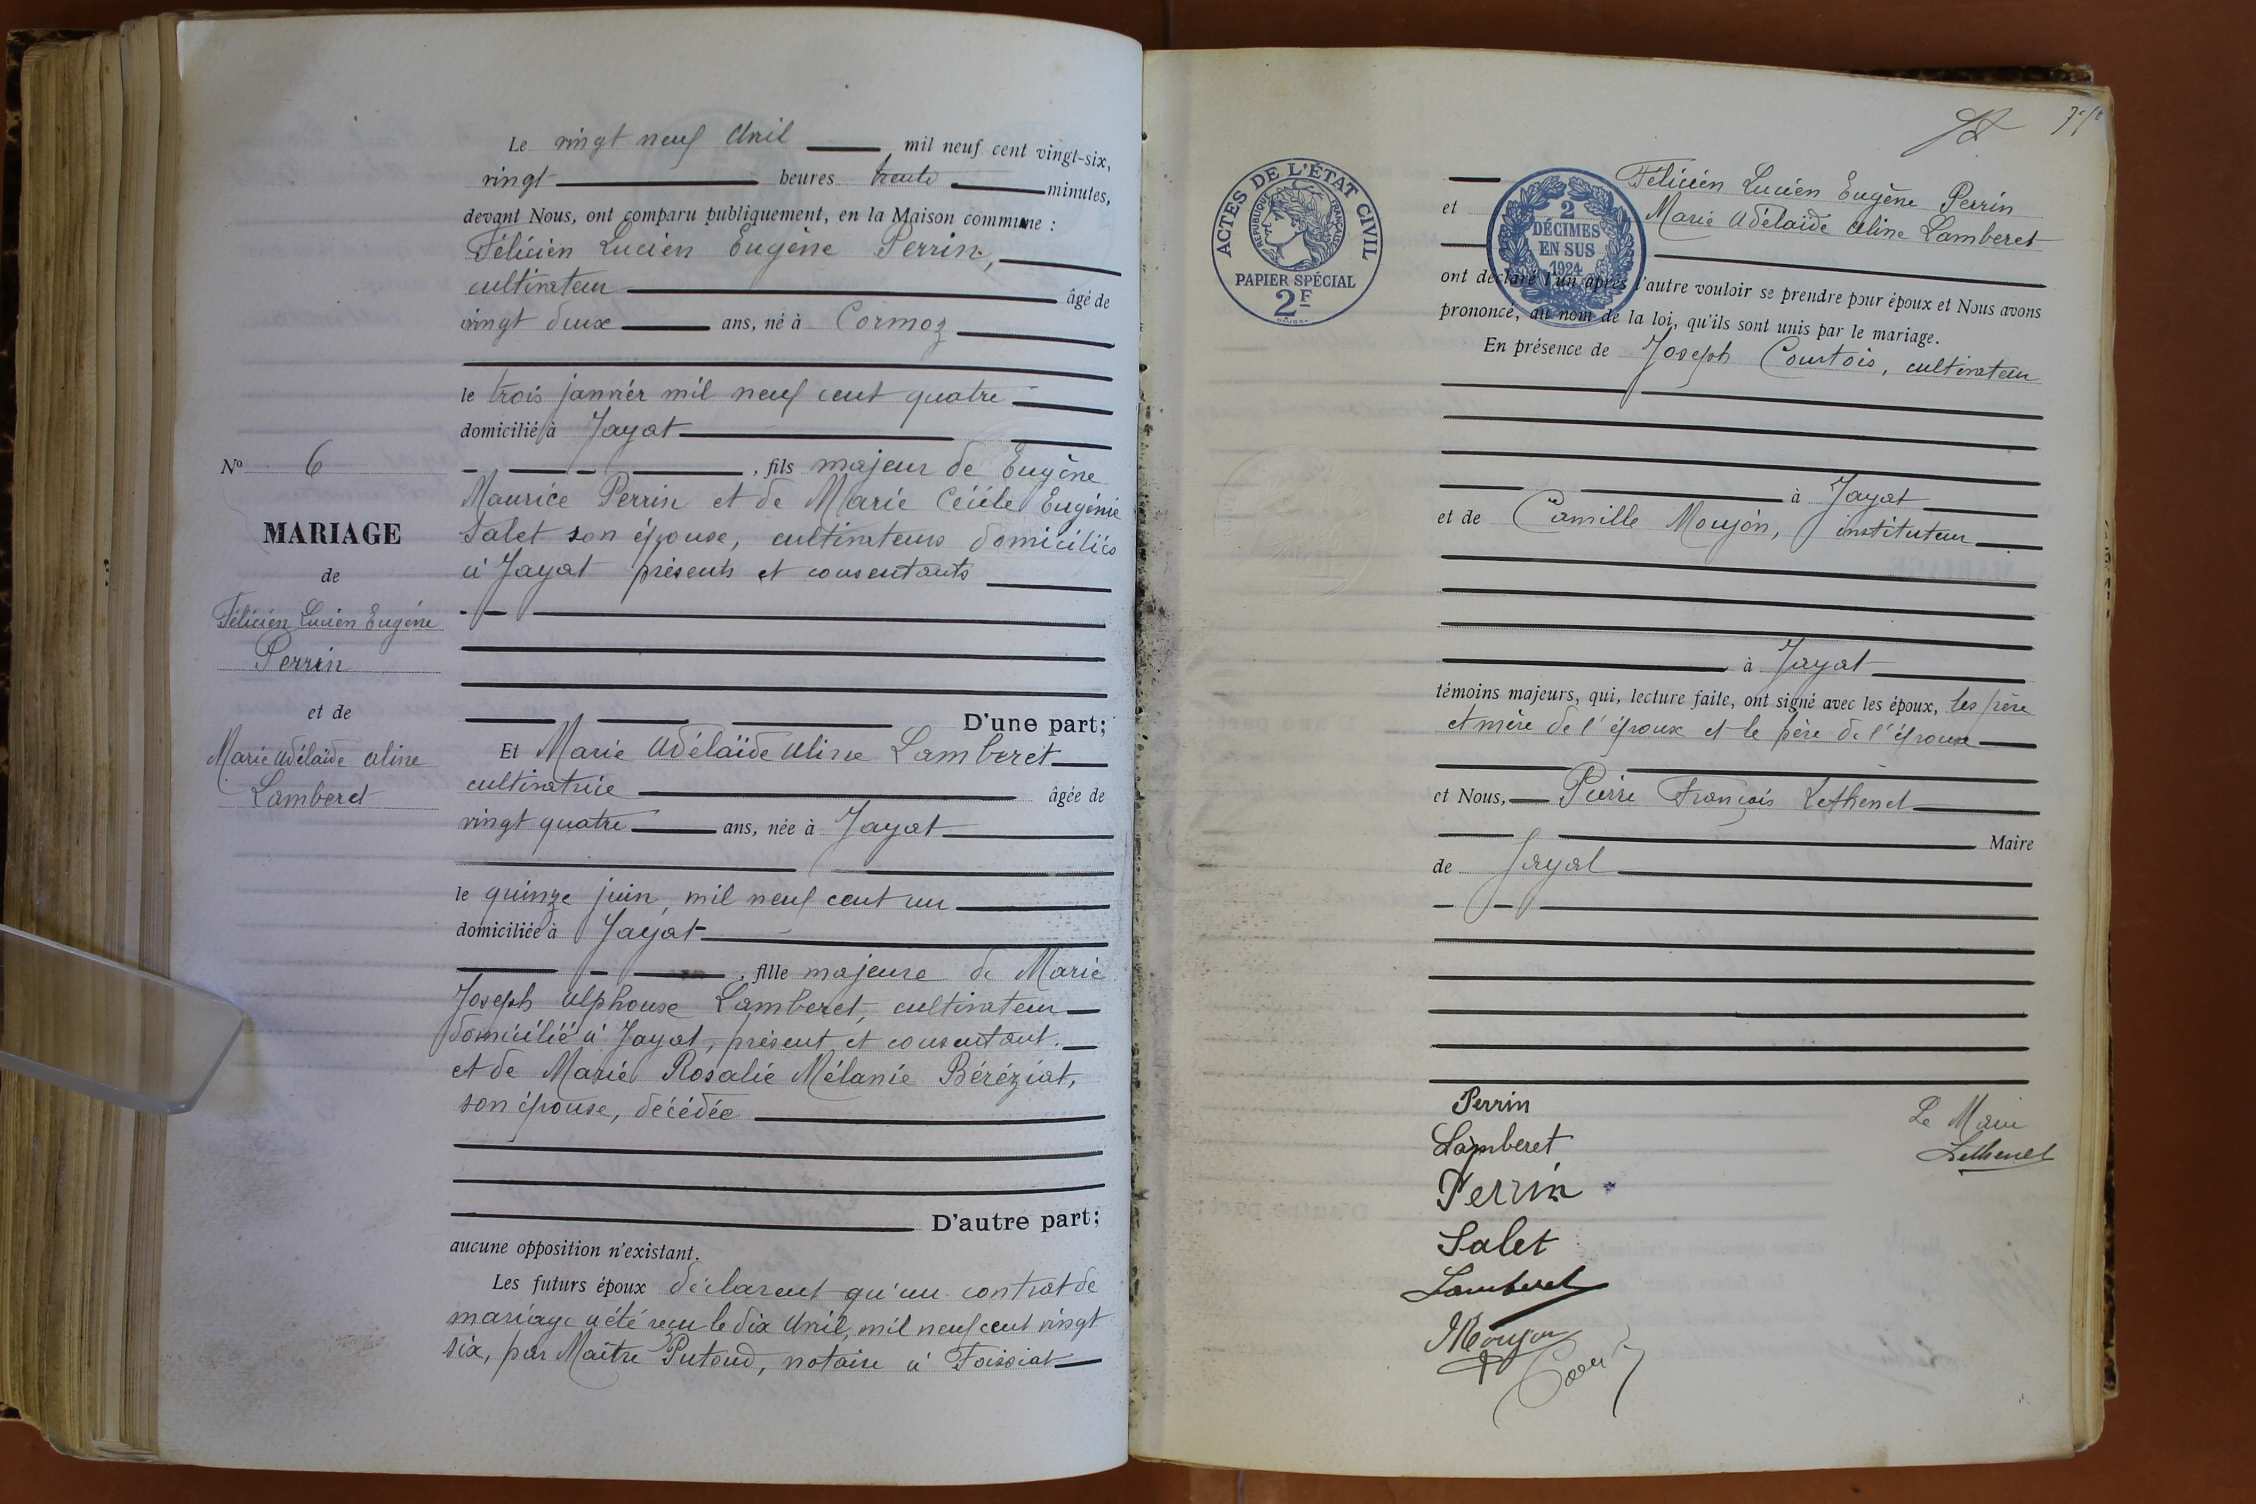 Le vingt neuf Avril mil neuf cent vingt-six,
vingt heures trente minutes,
devant Nous, ont comparu publiquement, en la Maison commune :
Félicien Lucien Eugène Perrin,
cultivateur âgé de
vingt deux ans, né à Cormoz
le trois janvier mil neuf cent quatre
domicilié à Jayat
, fils majeur de Eugène
Maurice Perrin et de Marie Cécile Eugénie
Salet son épouse, cultivateurs domiciliés
à Jayat présents et consentants
D'une part;
Et Marie Adélaïde Aline Lamberet
cultivatrice âgée de
vingt quatre ans, née à Jayat
le quinze juin, mil neuf cent un
domiciliée à Jayat
, fille majeure de Marie
Joseph Alphonse Lamberet, cultivateur
domicilié à Jayat, présent et consentant.
et de Marie Rosalie Mélanie Béréziat,
son épouse, décédée
D'autre part;
aucune opposition n'existant.
Les futurs époux déclarent qu'un contrat de
mariage a été reçu le dix Avril, mil neuf cent vingt
six, par Maître Putoud, notaire à Foissiat
No 6
MARIAGE
de
Félicien Lucien Eugène
Perrin
et de
Marie Adélaïde Aline
Lamberet
ACTES DE L'ÉTAT CIVIL
RÉPUBLIQUE FRANÇAISE
PAPIER SPÉCIAL
2F
2
DÉCIMES
EN SUS
1924
Félicien Lucien Eugène Perrin
et Marie Adélaïde Aline Lamberet
ont déclaré l'un après l'autre vouloir se prendre pour époux et Nous avons
prononcé, au nom de la loi, qu'ils sont unis par le mariage.
En présence de Joseph Courtois, cultivateur
à Jayat
et de Camille Moujon, instituteur
à Jayat
témoins majeurs, qui, lecture faite, ont signé avec les époux, les père
et mère de l'époux et le père de l'épouse
et Nous, Pierre François Lethenet
Maire
de Jayat
Perrin
Lamberet
Perrin
Salet
Lamberet
Moujon
Le Maire
Lethenet